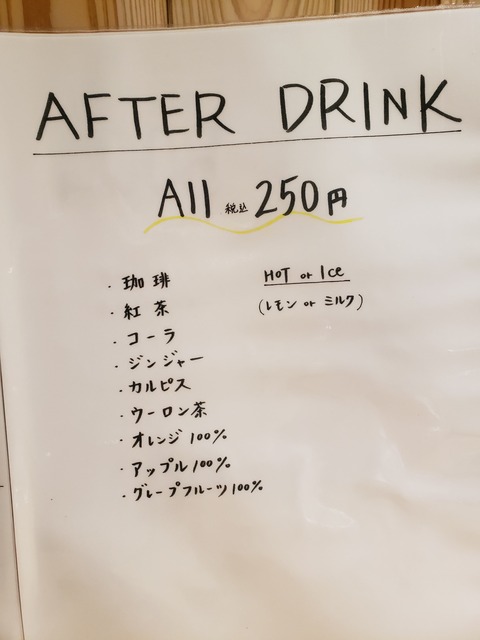 AFTER DRINK
All 税込 250円
・珈琲 HOT or Ice
・紅茶 (レモン or ミルク)
・コーラ
・ジンジャー
・カルピス
・ウーロン茶
・オレンジ 100%
・アップル 100%
・グレープフルーツ 100%